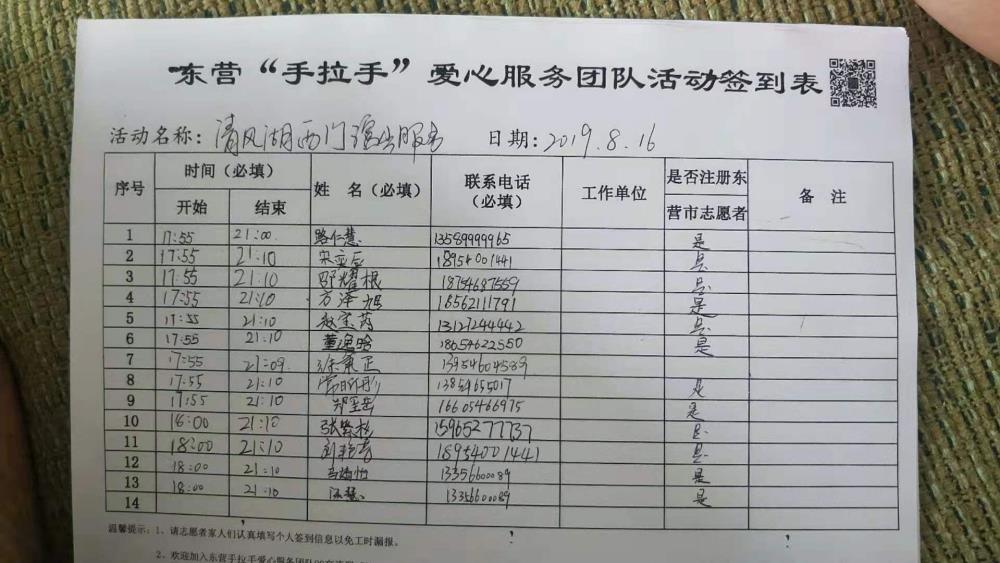 东营“手拉手”爱心服务团队活动签到表
活动名称：清风湖西门演出服务 日期：2019.8.16
序号 时间（必填） 姓 名（必填） 联系电话（必填） 工作单位 是否注册东营市志愿者 备 注
开始 结束
1 17:55 21:00 路仁慧 13589999965 是
2 17:55 21:10 18954001441 是
3 17:55 21:10 邵耀根 18754687559 是
4 17:55 21:10 方泽旭 18562111791 是
5 17:55 21:10 赵宝芮 13127244442 是
6 17:55 21:10 董逸晗 18654622550 是
7 17:55 21:09 15954604589
8 17:55 21:10 常昕彤 13854655017 是
9 17:55 21:10 16605466975 是
10 16:00 21:10 15965277737 是
11 18:00 21:10 18954001441 是
12 18:00 21:10 13356600089 是
13 18:00 21:10 13356600089 是
14
温馨提示：1、请志愿者家人们认真填写个人签到信息以免工时漏报。
2、欢迎加入东营手拉手爱心服务团队